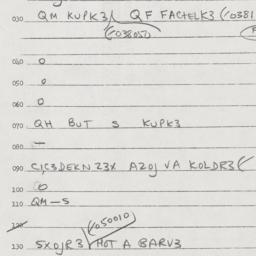 030 QM KUPK3/ QF FACHELK3 (/0381
(/038050)
040 0
050 0
060 0
070 QH BUT S KUPK3
080 —
090 C1C3DEKNZ3X AZOJ VA KOLDR3(/
100 0
110 QM-S
120
(/050010)
130 5X0JR3/ HOT A BARV3